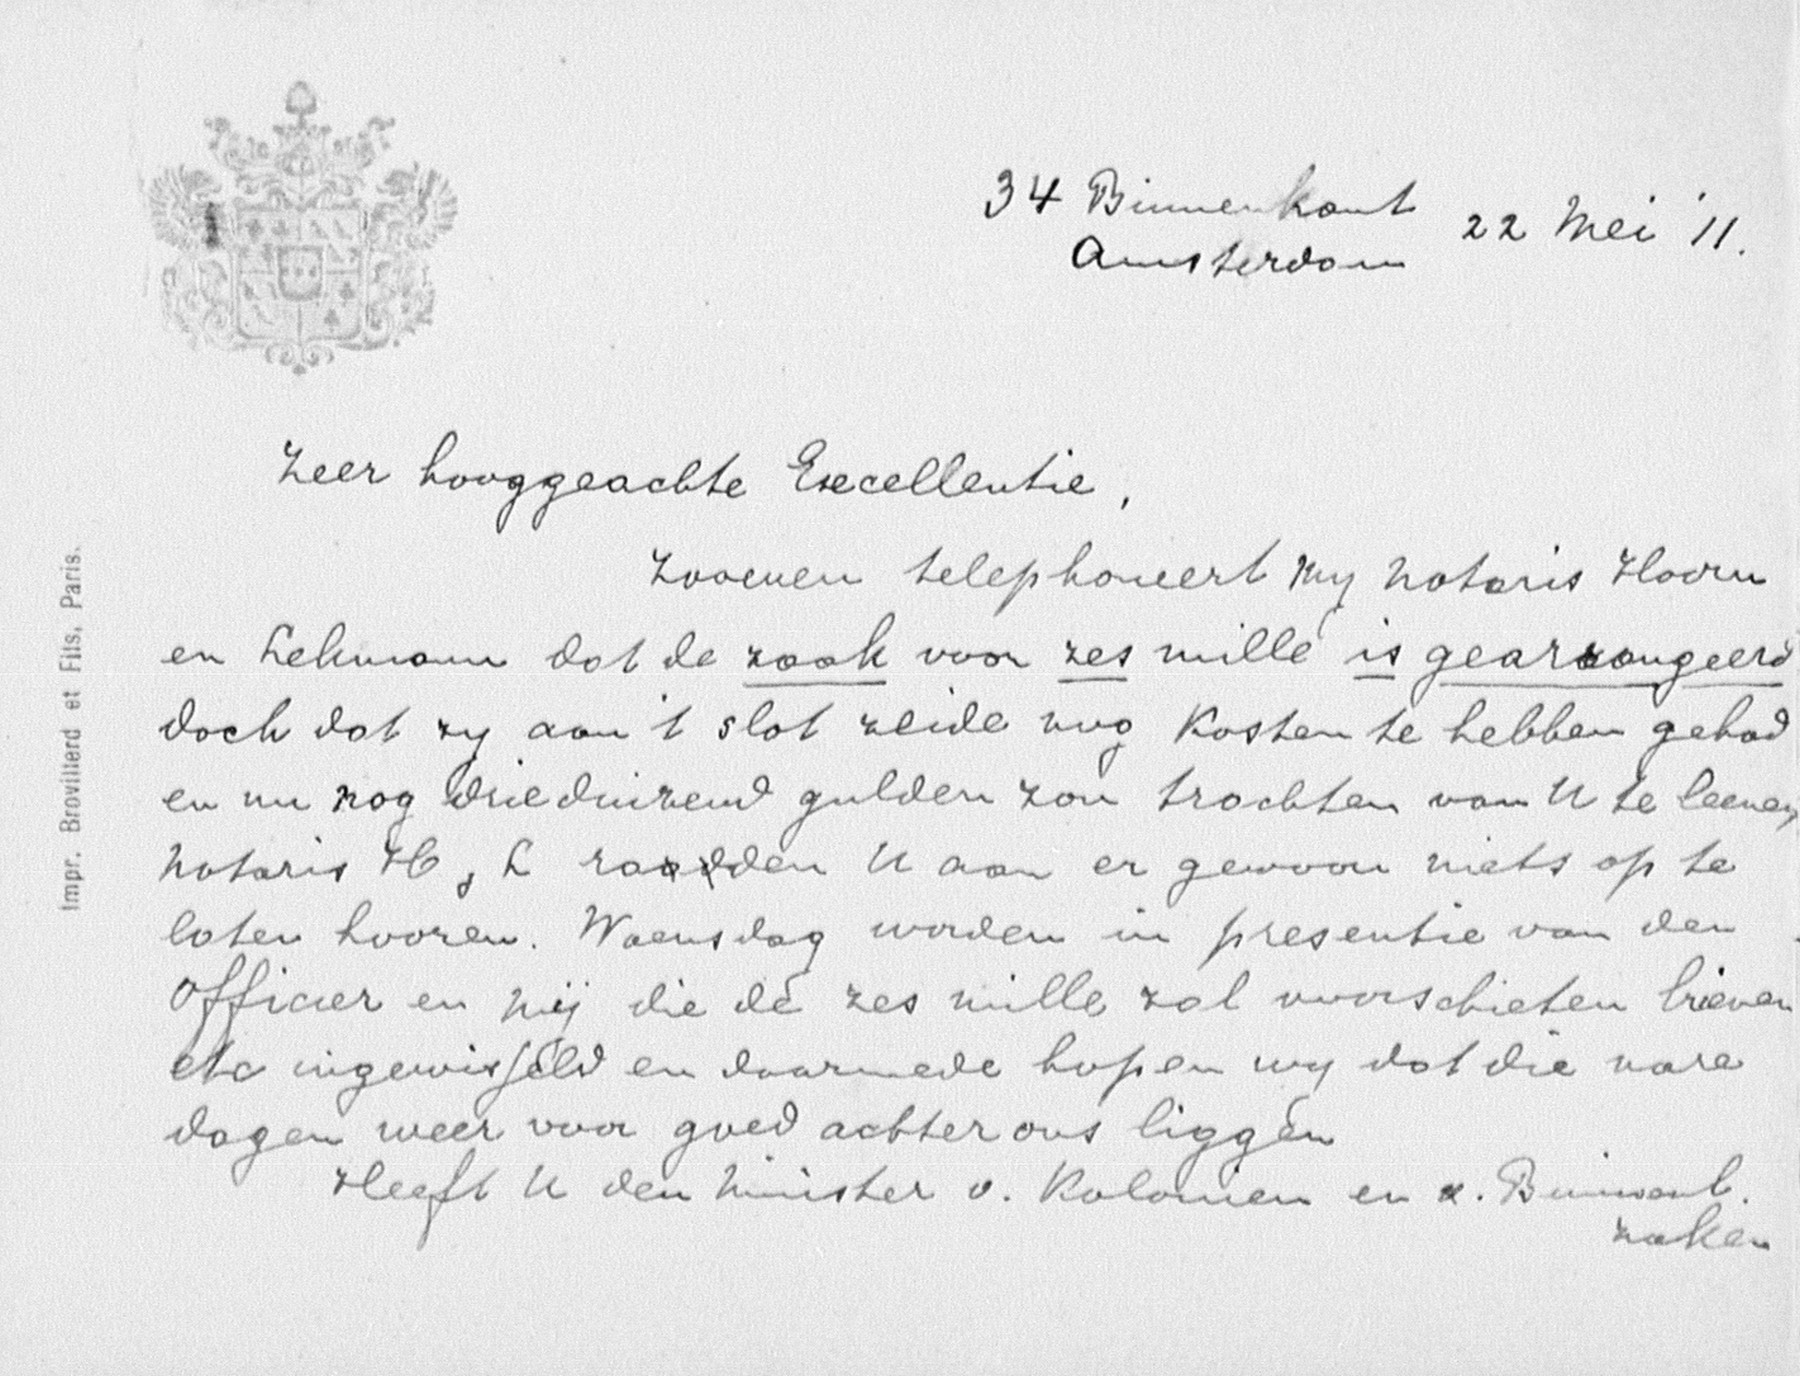 34 Binnenkant
Amsterdam
22 Mei '11.
Zeer hooggeachte Excellentie,
Zooeven telephoneert my notaris Hoorn
en Lekmann dat de zaak voor zes mille is gearrangeerd
doch dat zy aan 't slot zeide nog kosten te hebben gehad
en nu nog drieduizend gulden zou trachten van U te leenen,
Notaris H, L raadden U aan er gewoon niets op te
laten hooren. Woensdag worden in presentie van den
Officier en mij die de zes mille zal voorschieten brieven
etc ingewisseld en daarmede hopen wy dat die nare
dagen weer voor goed achter ons liggen
Heeft U den Minister v. Kolonien en v. Binnenl.
zaken
Impr. Brovillerd et Fils, Paris.